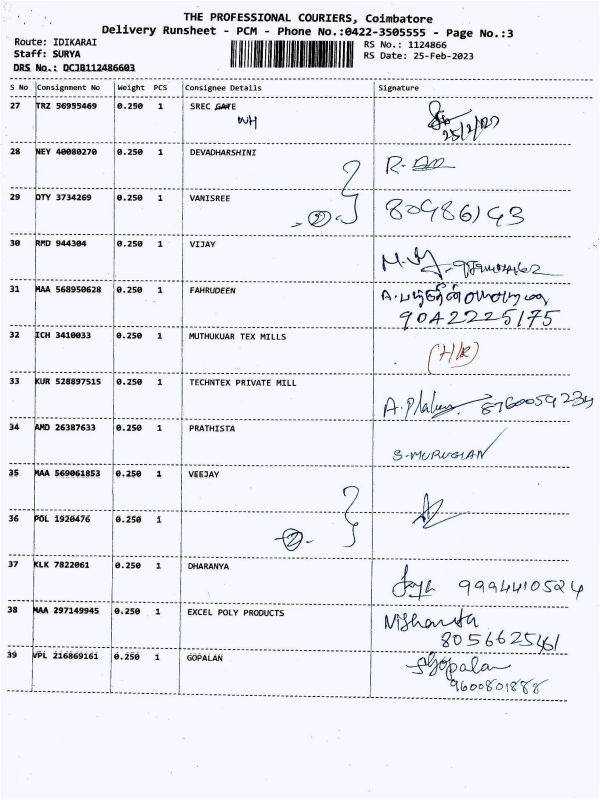 THE PROFESSIONAL COURIERS, Coimbatore
Delivery Runsheet - PCM - Phone No.:0422-3505555 - Page No.:3
Route: IDIKARAI RS No.: 1124866
Staff: SURYA RS Date: 25-Feb-2023
DRS No.: DCJB112486603
S No Consignment No Weight PCS Consignee Details Signature
27 TRZ 56955469 0.250 1 SREC GATE
WH 25/2/23
28 NEY 40080270 0.250 1 DEVADHARSHINI R.
29 DTY 3734269 0.250 1 VANISREE
2
30 RMD 944304 0.250 1 VIJAY
31 MAA 568950628 0.250 1 FAHRUDEEN
9042225175
32 ICH 3410033 0.250 1 MUTHUKUAR TEX MILLS
33 KUR 528897515 1 0.250 TECHNTEX PRIVATE MILL
8760059234
34 AMD 26387633 0.250 1 PRATHISTA
S-MURUGIAN
35 MAA 569061853 0.250 1 VEEJAY
36 POL 1920476 0.250 1
2
37 KLK 7822061 0.250 1 DHARANYA
9994410524
38 MAA 297149945 0.250 1 EXCEL POLY PRODUCTS Nishanth
8056625461
39 VPL 216869161 0.250 1 GOPALAN Gopalan
9600801888